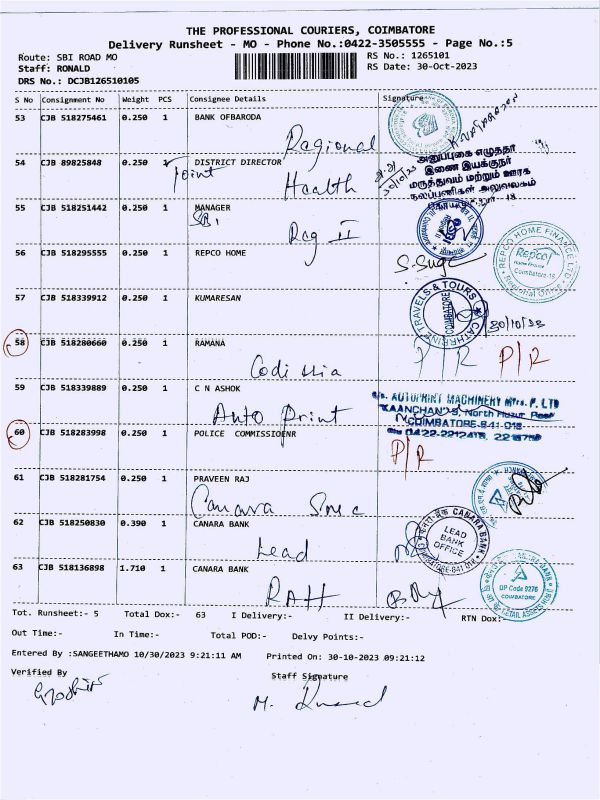 THE PROFESSIONAL COURIERS, COIMBATORE
Delivery Runsheet - MO - Phone No.:0422-3505555 - Page No.:5
Route: SBI ROAD MO RS No.: 1265101
Staff: RONALD RS Date: 30-Oct-2023
DRS No.: DCJB126510105
S No Consignment No Weight PCS Consignee Details Signature
53 CJB 518275461 0.250 1 BANK OFBARODA
Regional
54 CJB 89825848 0.250 1 DISTRICT DIRECTOR
Joint Health
30/10/23
அனுப்புகை எழுத்தர்
இணை இயக்குநர்
மருத்துவம் மற்றும் ஊரக
நலப்பணிகள் அலுவலகம்
55 CJB 518251442 0.250 1 MANAGER
SBI Reg II
56 CJB 518295555 0.250 1 REPCO HOME
REPCO HOME FINANCE LTD
Repco
Home Finance
Coimbatore-18
Regional Office
57 CJB 518339912 0.250 1 KUMARESAN
CATHRINE TRAVELS & TOURS
COIMBATORE
30/10/23
58 CJB 518280660 0.250 1 RAMANA
P/R P/R
Codissia
59 CJB 518339889 0.250 1 C N ASHOK
Auto Print
AUTOPRINT MACHINERY Mfrs. P. LTD
North Huzur Road
COIMBATORE-641-018
60 CJB 518283998 0.250 1 POLICE COMMISSIOENR
P/R
61 CJB 518281754 0.250 1 PRAVEEN RAJ
Canara Sme
62 CJB 518250830 0.390 1 CANARA BANK
Lead
CANARA BANK
LEAD
BANK
OFFICE
63 CJB 518136898 1.710 1 CANARA BANK
RAH
DP Code 9276
COIMBATORE
RETAIL ASSETS
Tot. Runsheet:- 5 Total Dox:- 63 I Delivery:- II Delivery:- RTN Dox:-
Out Time:- In Time:- Total POD:- Delvy Points:-
Entered By :SANGEETHAMO 10/30/2023 9:21:11 AM Printed On: 30-10-2023 09:21:12
Verified By Staff Signature